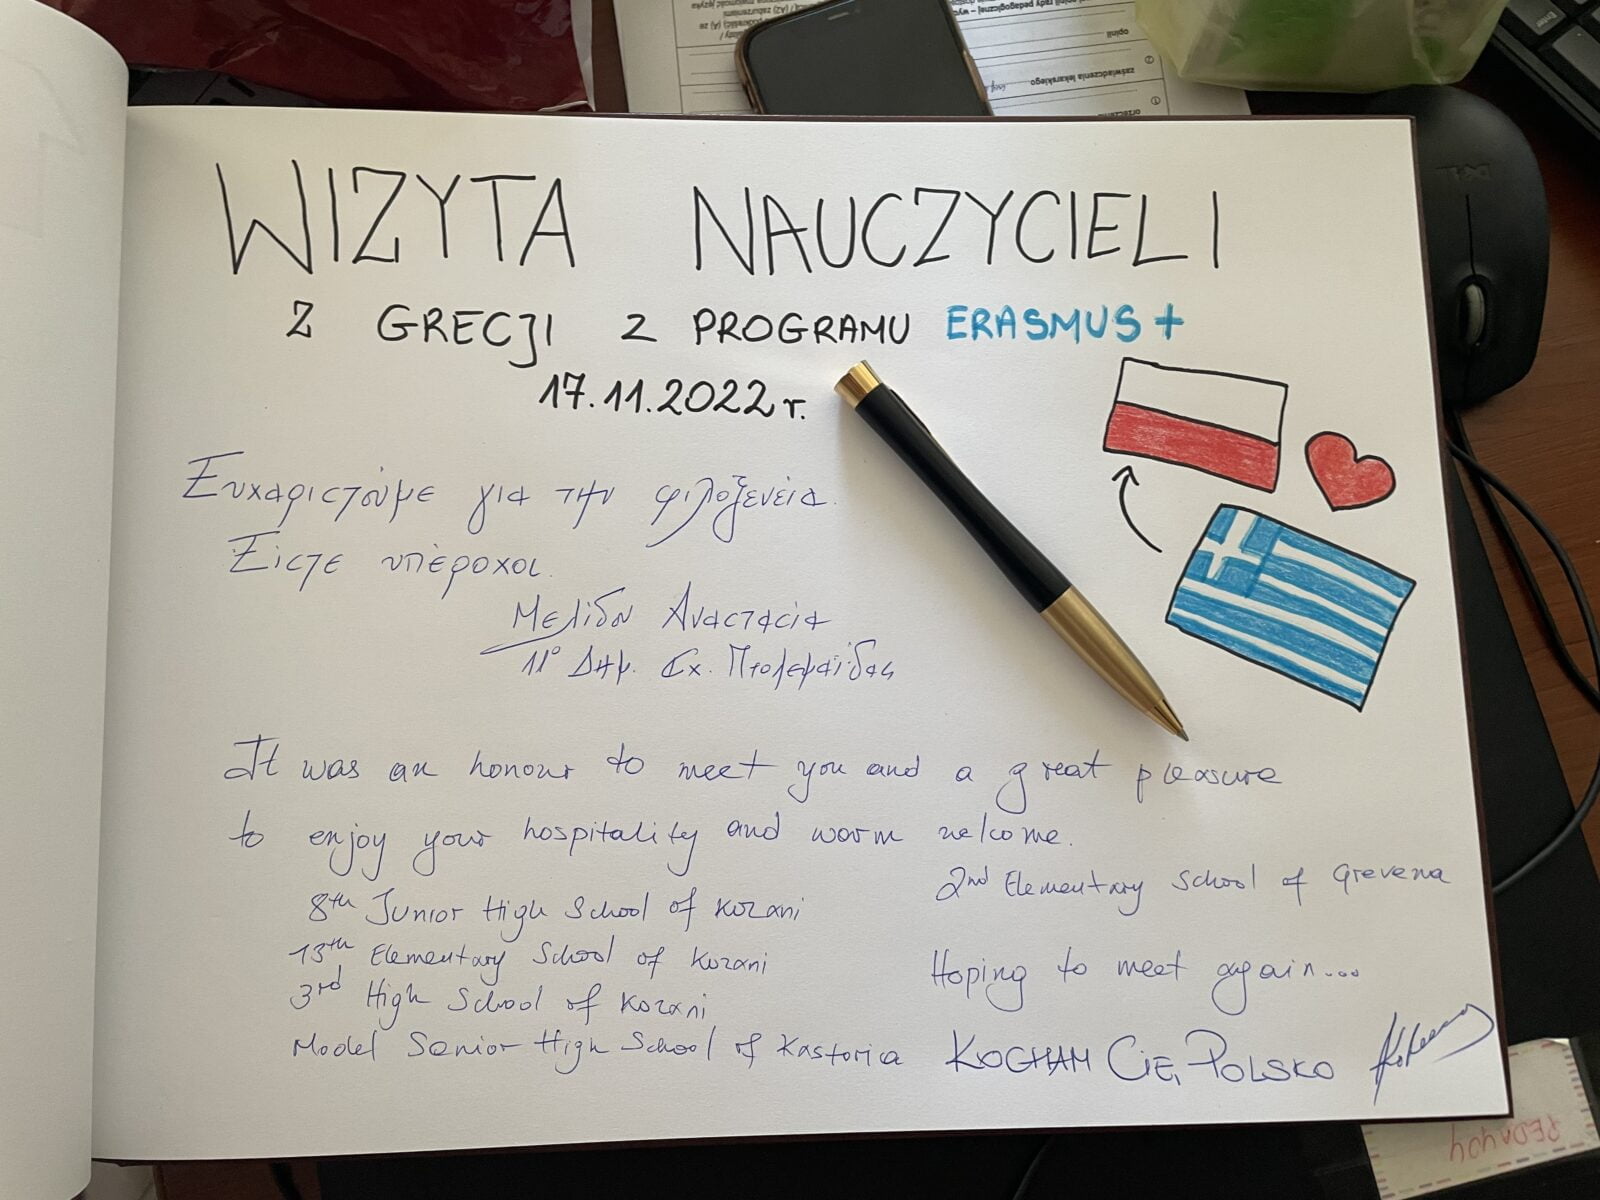 WIZYTA NAUCZYCIELI
Z GRECJI Z PROGRAMU ERASMUS+
17.11.2022 r.
Ευχαριστούμε για την φιλοξενεία.
Είστε υπέροχοι.
Μελίδου Αναστασία
11° Δημ. Σχ. Πτολεμαΐδας
It was an honour to meet you and a great pleasure
to enjoy your hospitality and warm welcome.
2nd Elementary School of Grevena
8th Junior High School of Kozani
13th Elementary School of Kozani
3rd High School of Kozani
Model Senior High School of Kastoria
Hoping to meet again...
KOCHAM CIĘ, POLSKO
opinii
zaświadczenia lekarskiego
DELL
Enter